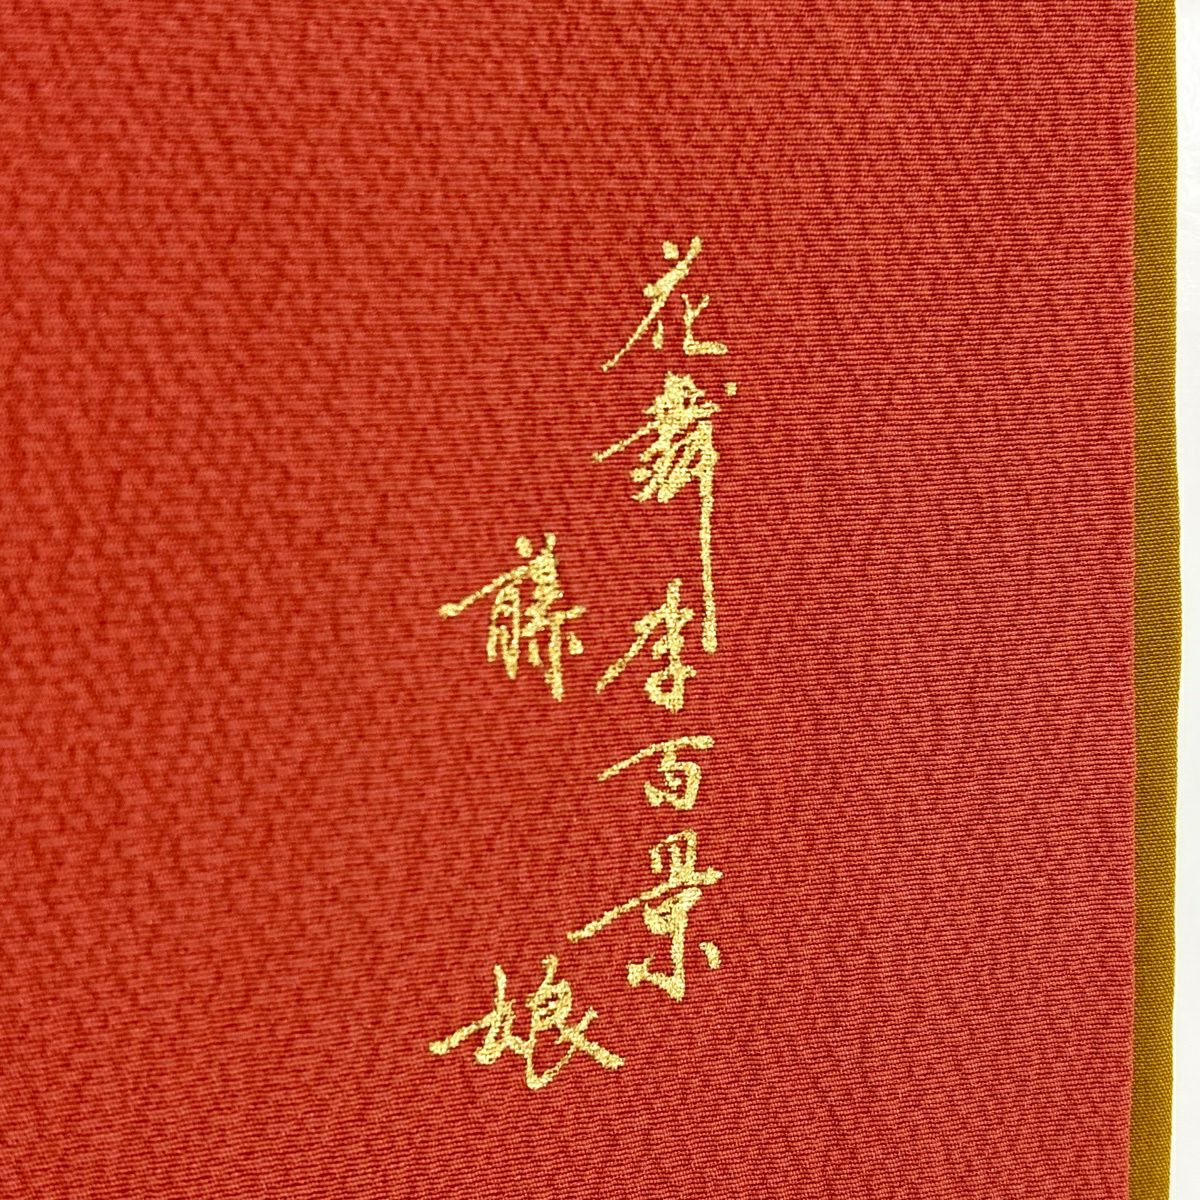 花舞季百景
藤娘